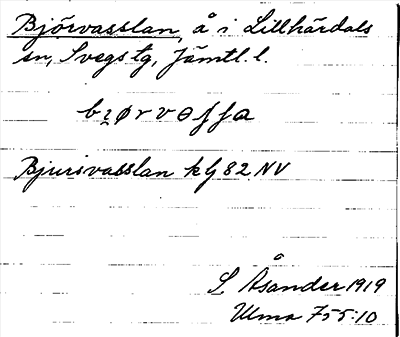 Björvasslan, å i Lillhärdals
sn, Svegs tg, Jämtl. l.
Bjursvasslan kg 82 NV
L. Åsander 1919
Ulma 755:10